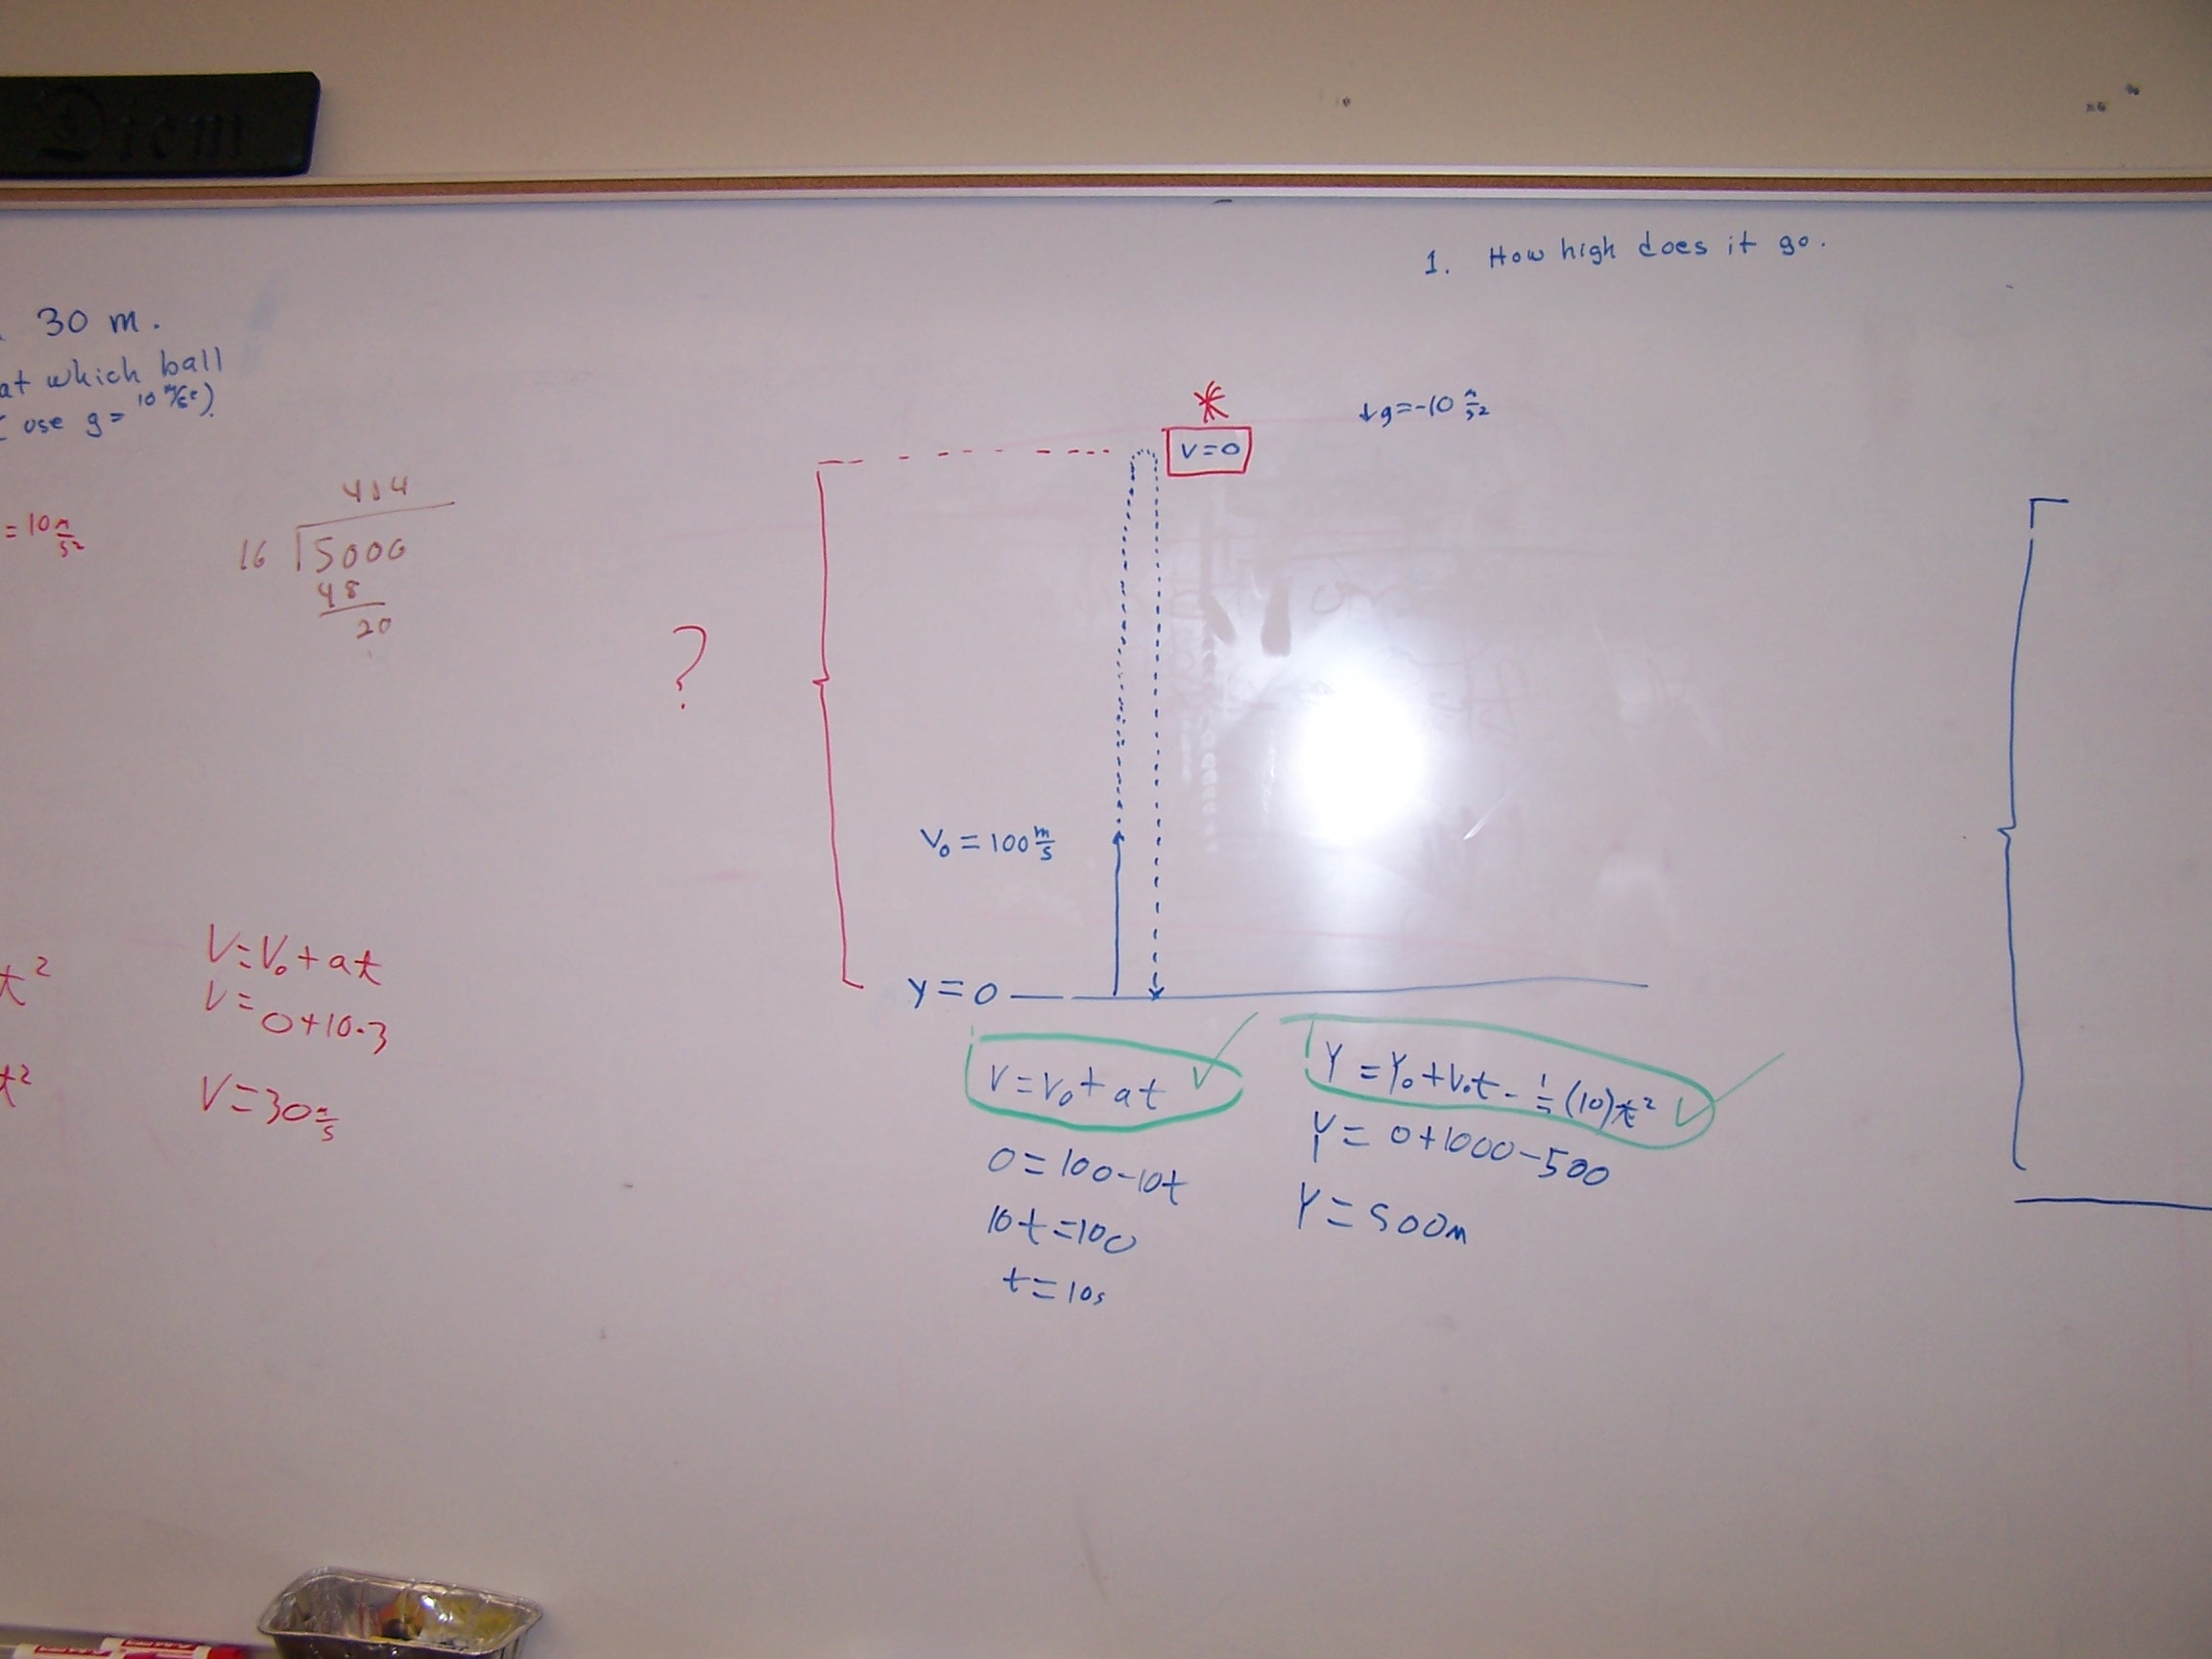 Diem
1. How high does it go.
30 m.
at which ball
use g = 10 m/s²)
= 10 m/s²
414
16 5000
48
20
?
*
V=0
↓g=-10 m/s²
V₀ = 100 m/s
y=0
V=V₀+at
V=
0+10·3
V=30 m/s
t²
t²
V=V₀+at ✓
0=100-10t
10t=100
t=10s
Y=Y₀+V₀t-½(10)t² ✓
Y=0+1000-500
Y=500m